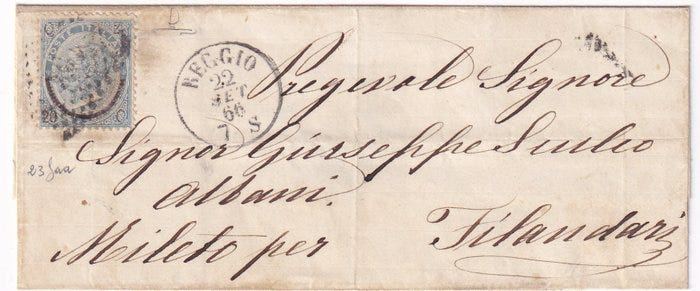 D
POSTE ITALIANE
20 C
REGGIO
22
SET
66
7 S
Pregevole Signore
Signor Giuseppe
Albani.
Mileto per Filandari
23 Jaa